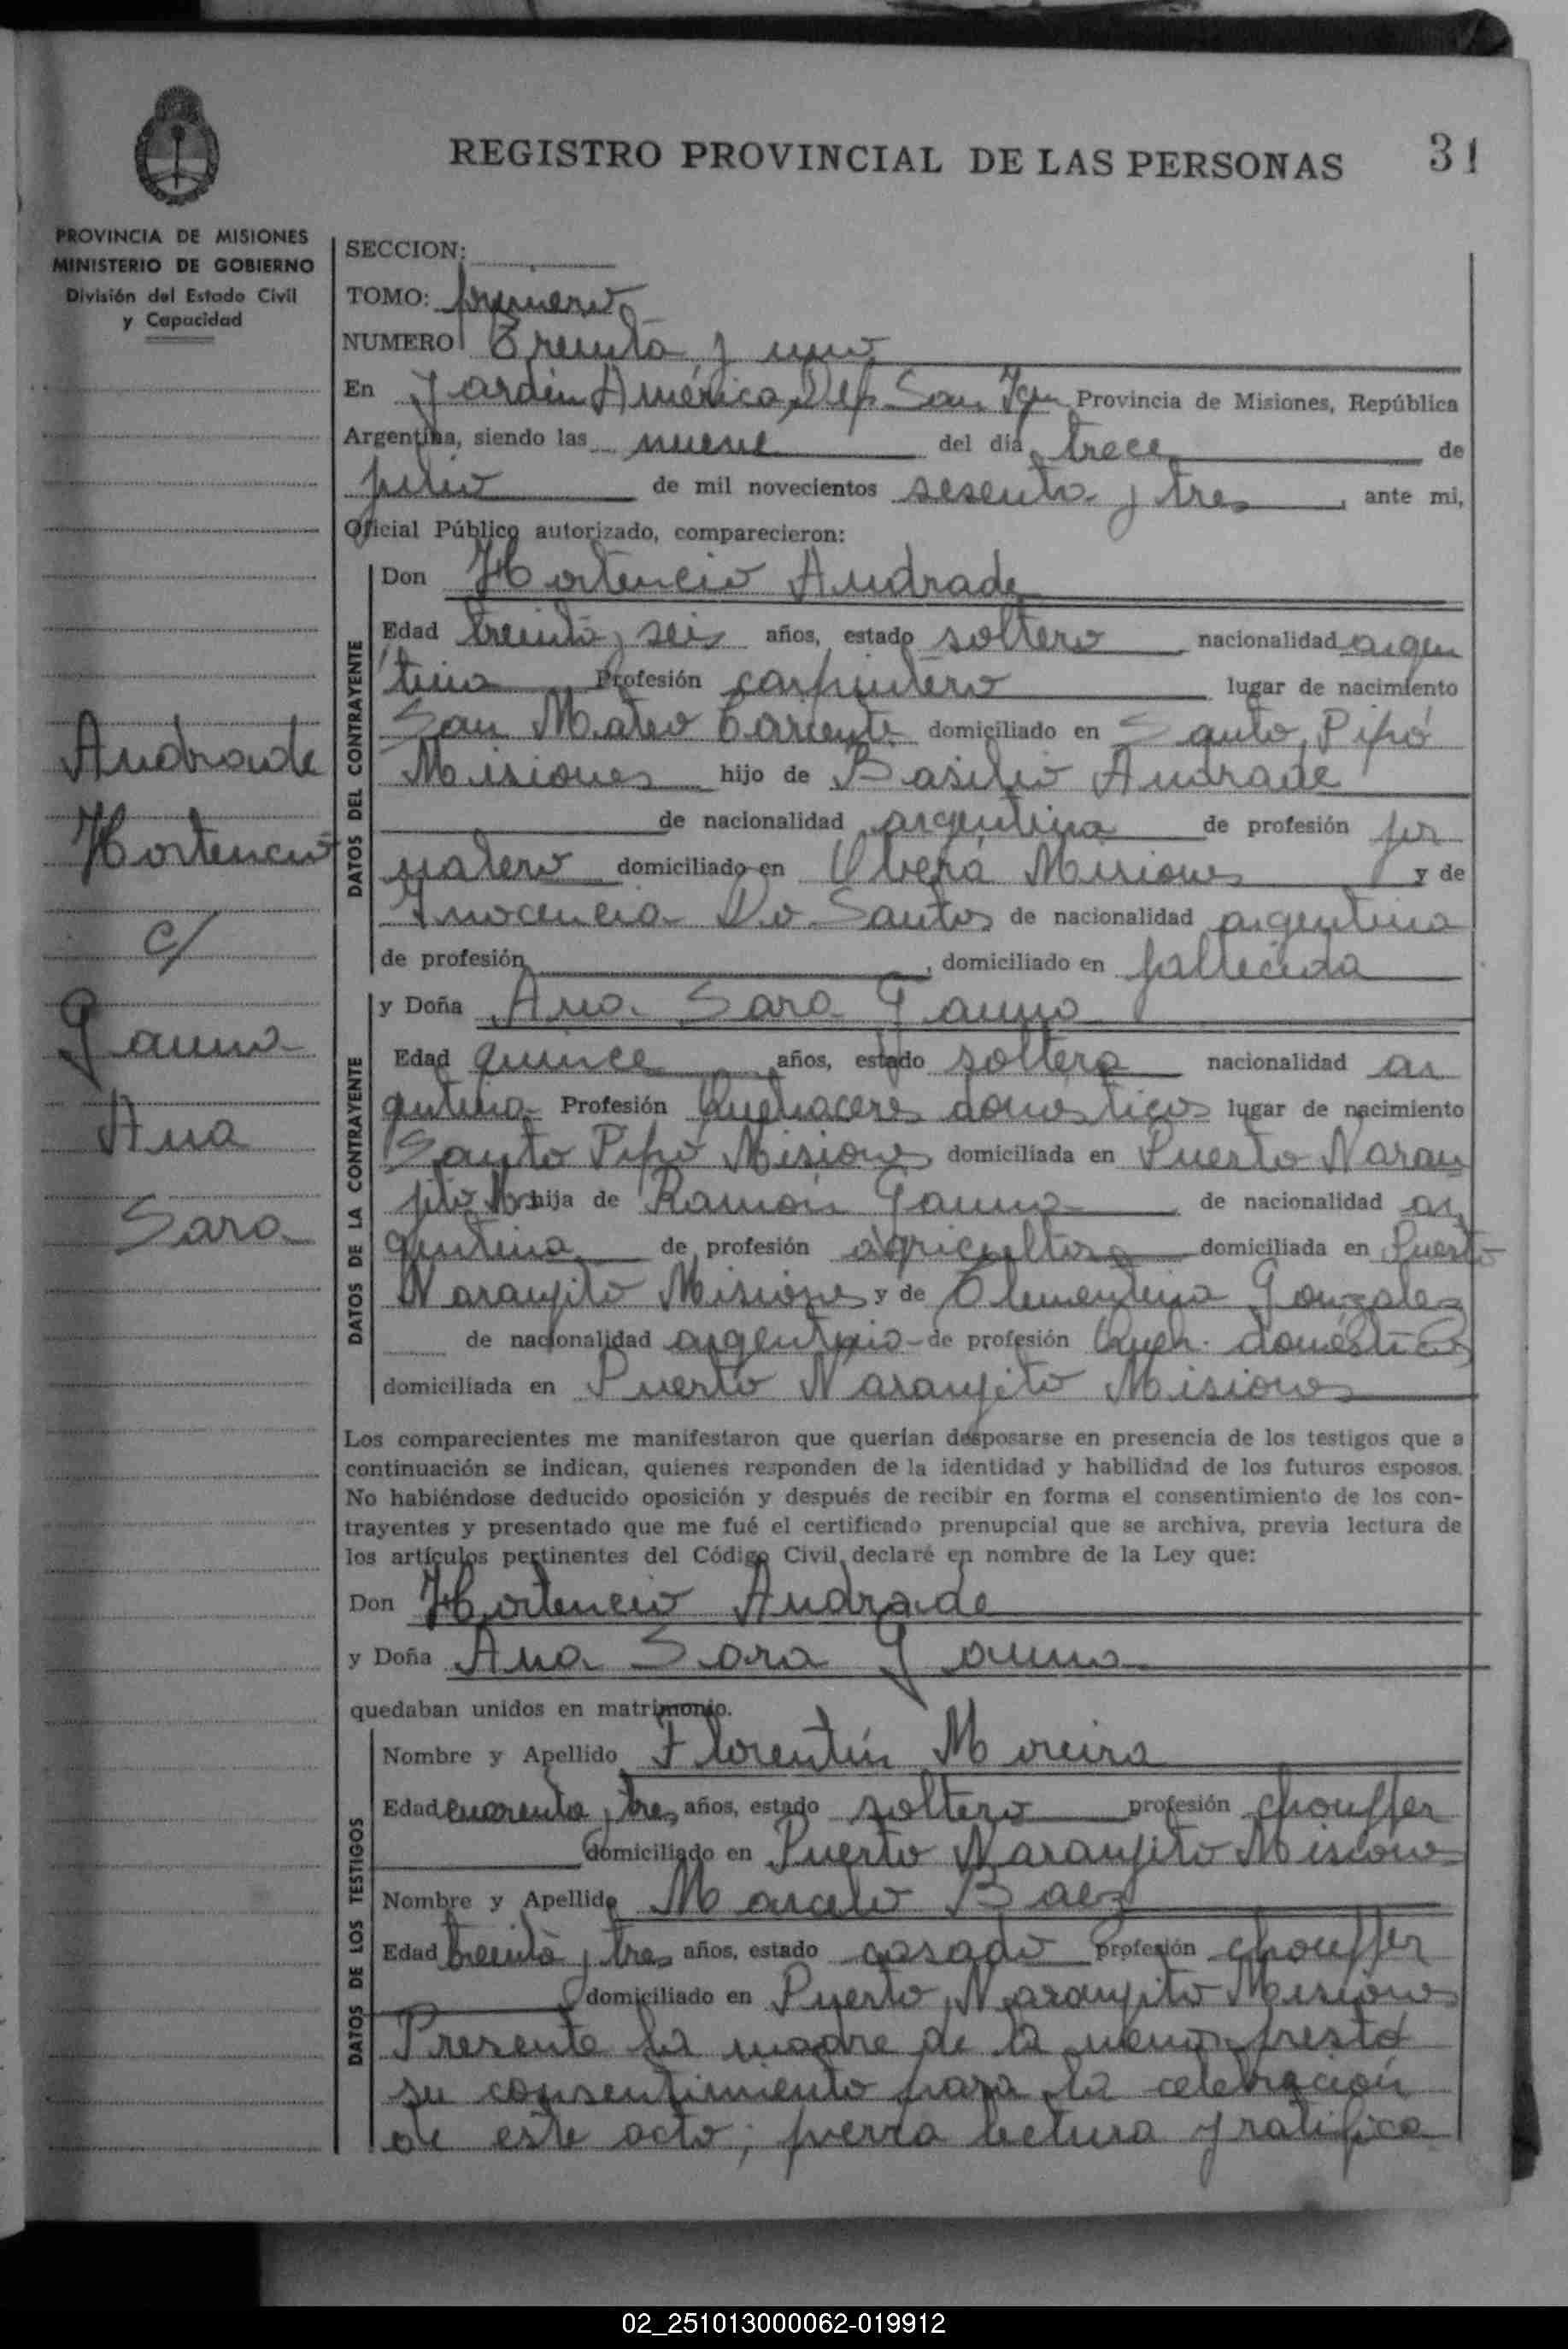 REGISTRO PROVINCIAL DE LAS PERSONAS 31
PROVINCIA DE MISIONES
MINISTERIO DE GOBIERNO
División del Estado Civil
y Capacidad
Andrade
Hortencio
c/
Gauna
Ana
Sara
SECCION:
TOMO: primero
NUMERO Treinta y uno
En Jardín América, Dep. San Ign Provincia de Misiones, República
Argentina, siendo las nueve del día trece de
julio de mil novecientos sesenta y tres, ante mi,
Oficial Público autorizado, comparecieron:
DATOS DEL CONTRAYENTE
Don Hortencio Andrade
Edad treinta y seis años, estado soltero nacionalidad argen
tina Profesión carpintero lugar de nacimiento
San Mateo Corriente domiciliado en Santo Pipó
Misiones hijo de Basilio Andrade
de nacionalidad argentina de profesión jor
nalero domiciliado en Oberá Misiones y de
Inocencia Do Santos de nacionalidad argentina
de profesión , domiciliado en fallecida
DATOS DE LA CONTRAYENTE
y Doña Ana Sara Gauna
Edad quince años, estado soltera nacionalidad ar
gentina Profesión Quehaceres domesticos lugar de nacimiento
Santo Pipó Misiones domiciliada en Puerto Naran
jito Ms hija de Ramón Gauna de nacionalidad ar
gentina de profesión agricultora domiciliada en Puerto
Naranjito Misiones y de Clementina Gonzalez
de nacionalidad argentina de profesión Queh. domésticos
domiciliada en Puerto Naranjito Misiones
Los comparecientes me manifestaron que querían desposarse en presencia de los testigos que a
continuación se indican, quienes responden de la identidad y habilidad de los futuros esposos.
No habiéndose deducido oposición y después de recibir en forma el consentimiento de los con-
trayentes y presentado que me fué el certificado prenupcial que se archiva, previa lectura de
los artículos pertinentes del Código Civil, declaré en nombre de la Ley que:
Don Hortencio Andrade
y Doña Ana Sara Gauna
quedaban unidos en matrimonio.
DATOS DE LOS TESTIGOS
Nombre y Apellido Florentín Moreira
Edad cuarenta y tres años, estado soltero profesión chouffer
domiciliado en Puerto Naranjito Misiones
Nombre y Apellido Marcelo Baez
Edad treinta y tres años, estado casado profesión chouffer
domiciliado en Puerto Naranjito Misiones
Presente la madre de la menor prestó
su consentimiento para la celebración
de este acto; previa lectura y ratifica
02_251013000062-019912